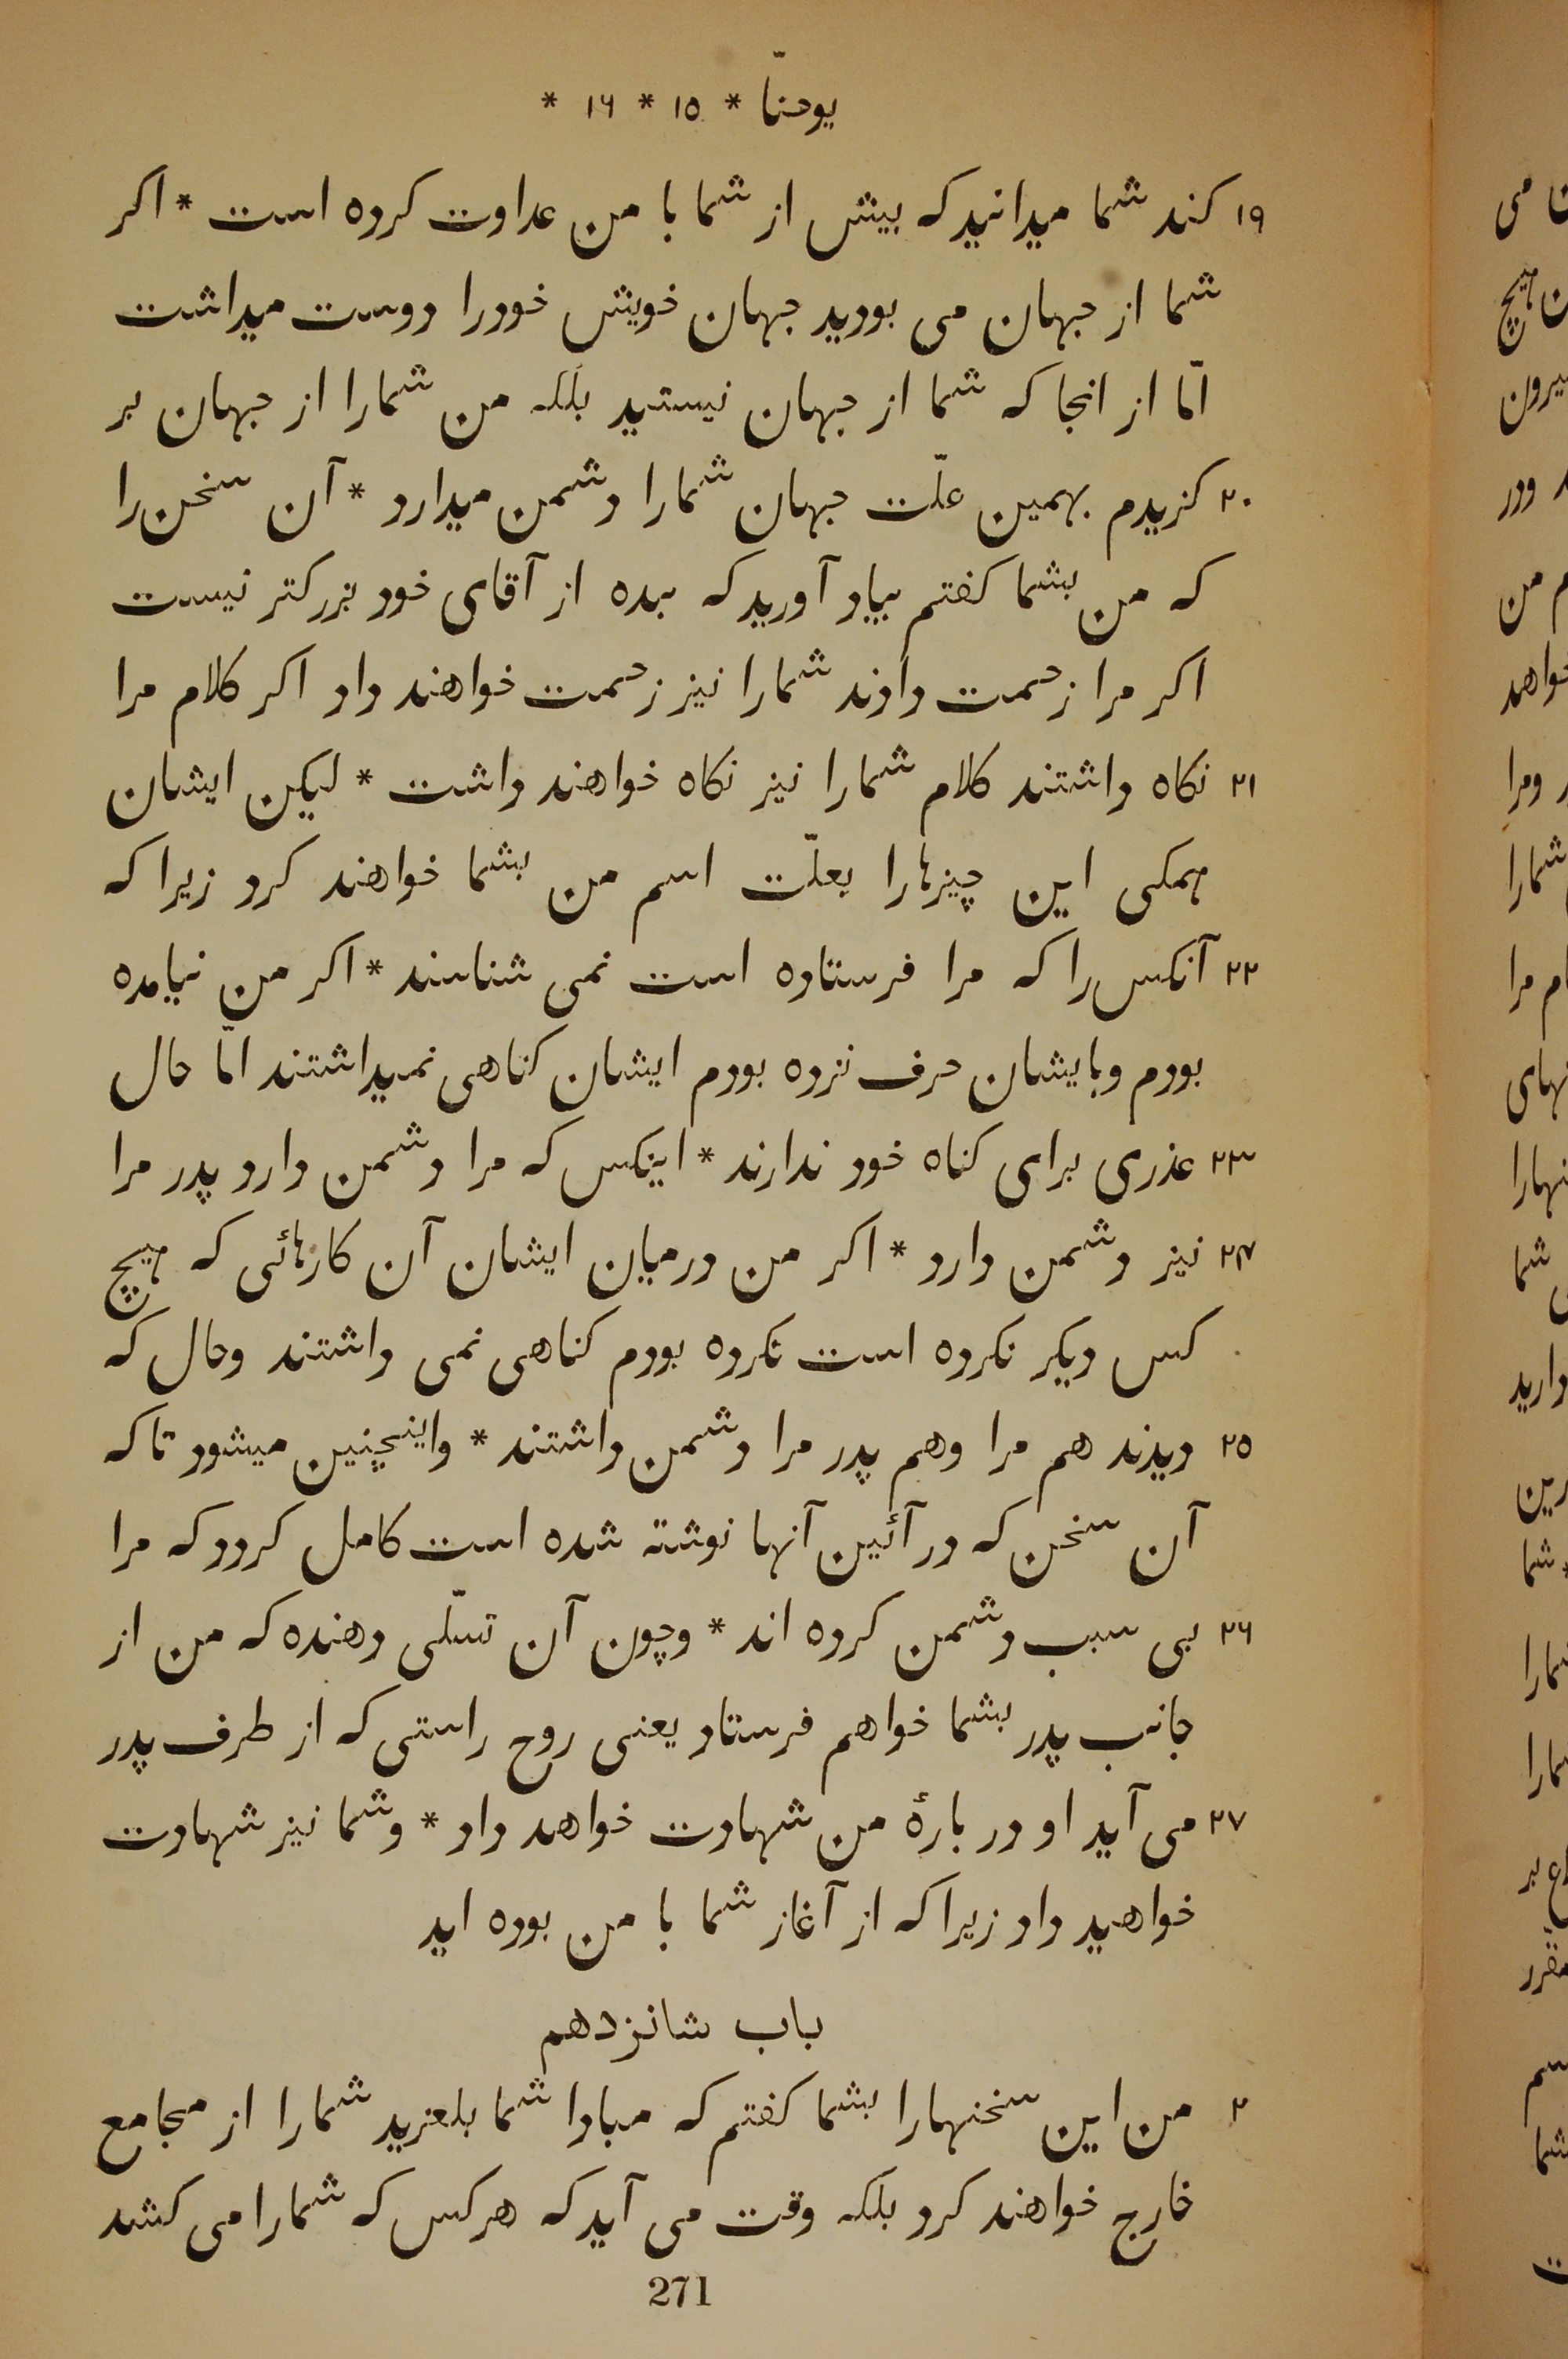 یوحنّا * ۱۵ * ۱۶ *
۱۹ کند شما میدانید که بیش از شما با من عداوت کرده است * اکر
شما از جهان می بودید جهان خویش خودرا دوست میداشت
امّا از انجا که شما از جهان نیستید بلکه من شمارا از جهان بر
۲۰ کزیدم بهمین علّت جهان شمارا دشمن میدارد * آن سخن را
که من بشما کفتم بیاد آورید که بنده از آقای خود بزرکتر نیست
اکر مرا زحمت دادند شمارا نیز زحمت خواهند داد اکر کلام مرا
۲۱ نکاه داشتند کلام شمارا نیز نکاه خواهند داشت * لیکن ایشان
همکی این چیزهارا بعلّت اسم من بشما خواهند کرد زیرا که
۲۲ آنکس را که مرا فرستاده است نمی شناسند * اکر من نیامده
بودم وبایشان حرف نزده بودم ایشان کناهی نمیداشتند امّا حال
۲۳ عذری برای کناه خود ندارند * اینکس که مرا دشمن دارد پدر مرا
۲۴ نیز دشمن دارد * اکر من درمیان ایشان آن کارهائی که هیچ
کس دیکر نکرده است نکرده بودم کناهی نمی داشتند وحال که
۲۵ دیدند هم مرا وهم پدر مرا دشمن داشتند * واینچنین میشود تا که
آن سخن که در آئین آنها نوشته شده است کامل کردد که مرا
۲۶ بی سبب دشمن کرده اند * وچون آن تسلّی دهنده که من از
جانب پدر بشما خواهم فرستاد یعنی روح راستی که از طرف پدر
۲۷ می آید او در بارۀ من شهادت خواهد داد * وشما نیز شهادت
خواهید داد زیرا که از آغاز شما با من بوده اید
باب شانزدهم
۲ من این سخنهارا بشما کفتم که مبادا شما بلغزید شمارا از مجامع
خارج خواهند کرد بلکه وقت می آید که هرکس که شمارا می کشد
271